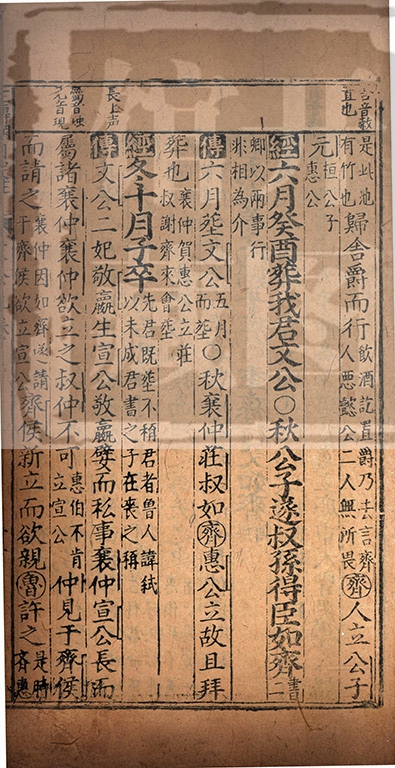 舍音赦
置也
長上声
屬音燭
見音現
是此池有竹也歸舍爵而行飲酒訖置爵乃去言齊人惡懿公二人無所畏齊人立公子
元桓公子惠公
經六月癸酉葬我君文公〇秋公子遂叔孫得臣如齊書二
卿以兩事行非相為介
傳六月葬文公五月而葬〇秋襄仲莊叔如齊惠公立故且拜
葬也襄仲賀惠公立莊叔謝齊來會葬
經冬十月子卒先君既葬不稱君者魯人諱弒以未成君書之子在喪之稱
傳文公二妃敬嬴生宣公敬嬴嬖而私事襄仲宣公長而
屬諸襄仲襄仲欲立之叔仲不可惠伯不肯立宣公仲見于齊侯
而請之襄仲因如齊遂請于齊侯欲立宣公齊侯新立而欲親魯許之是時齊惠